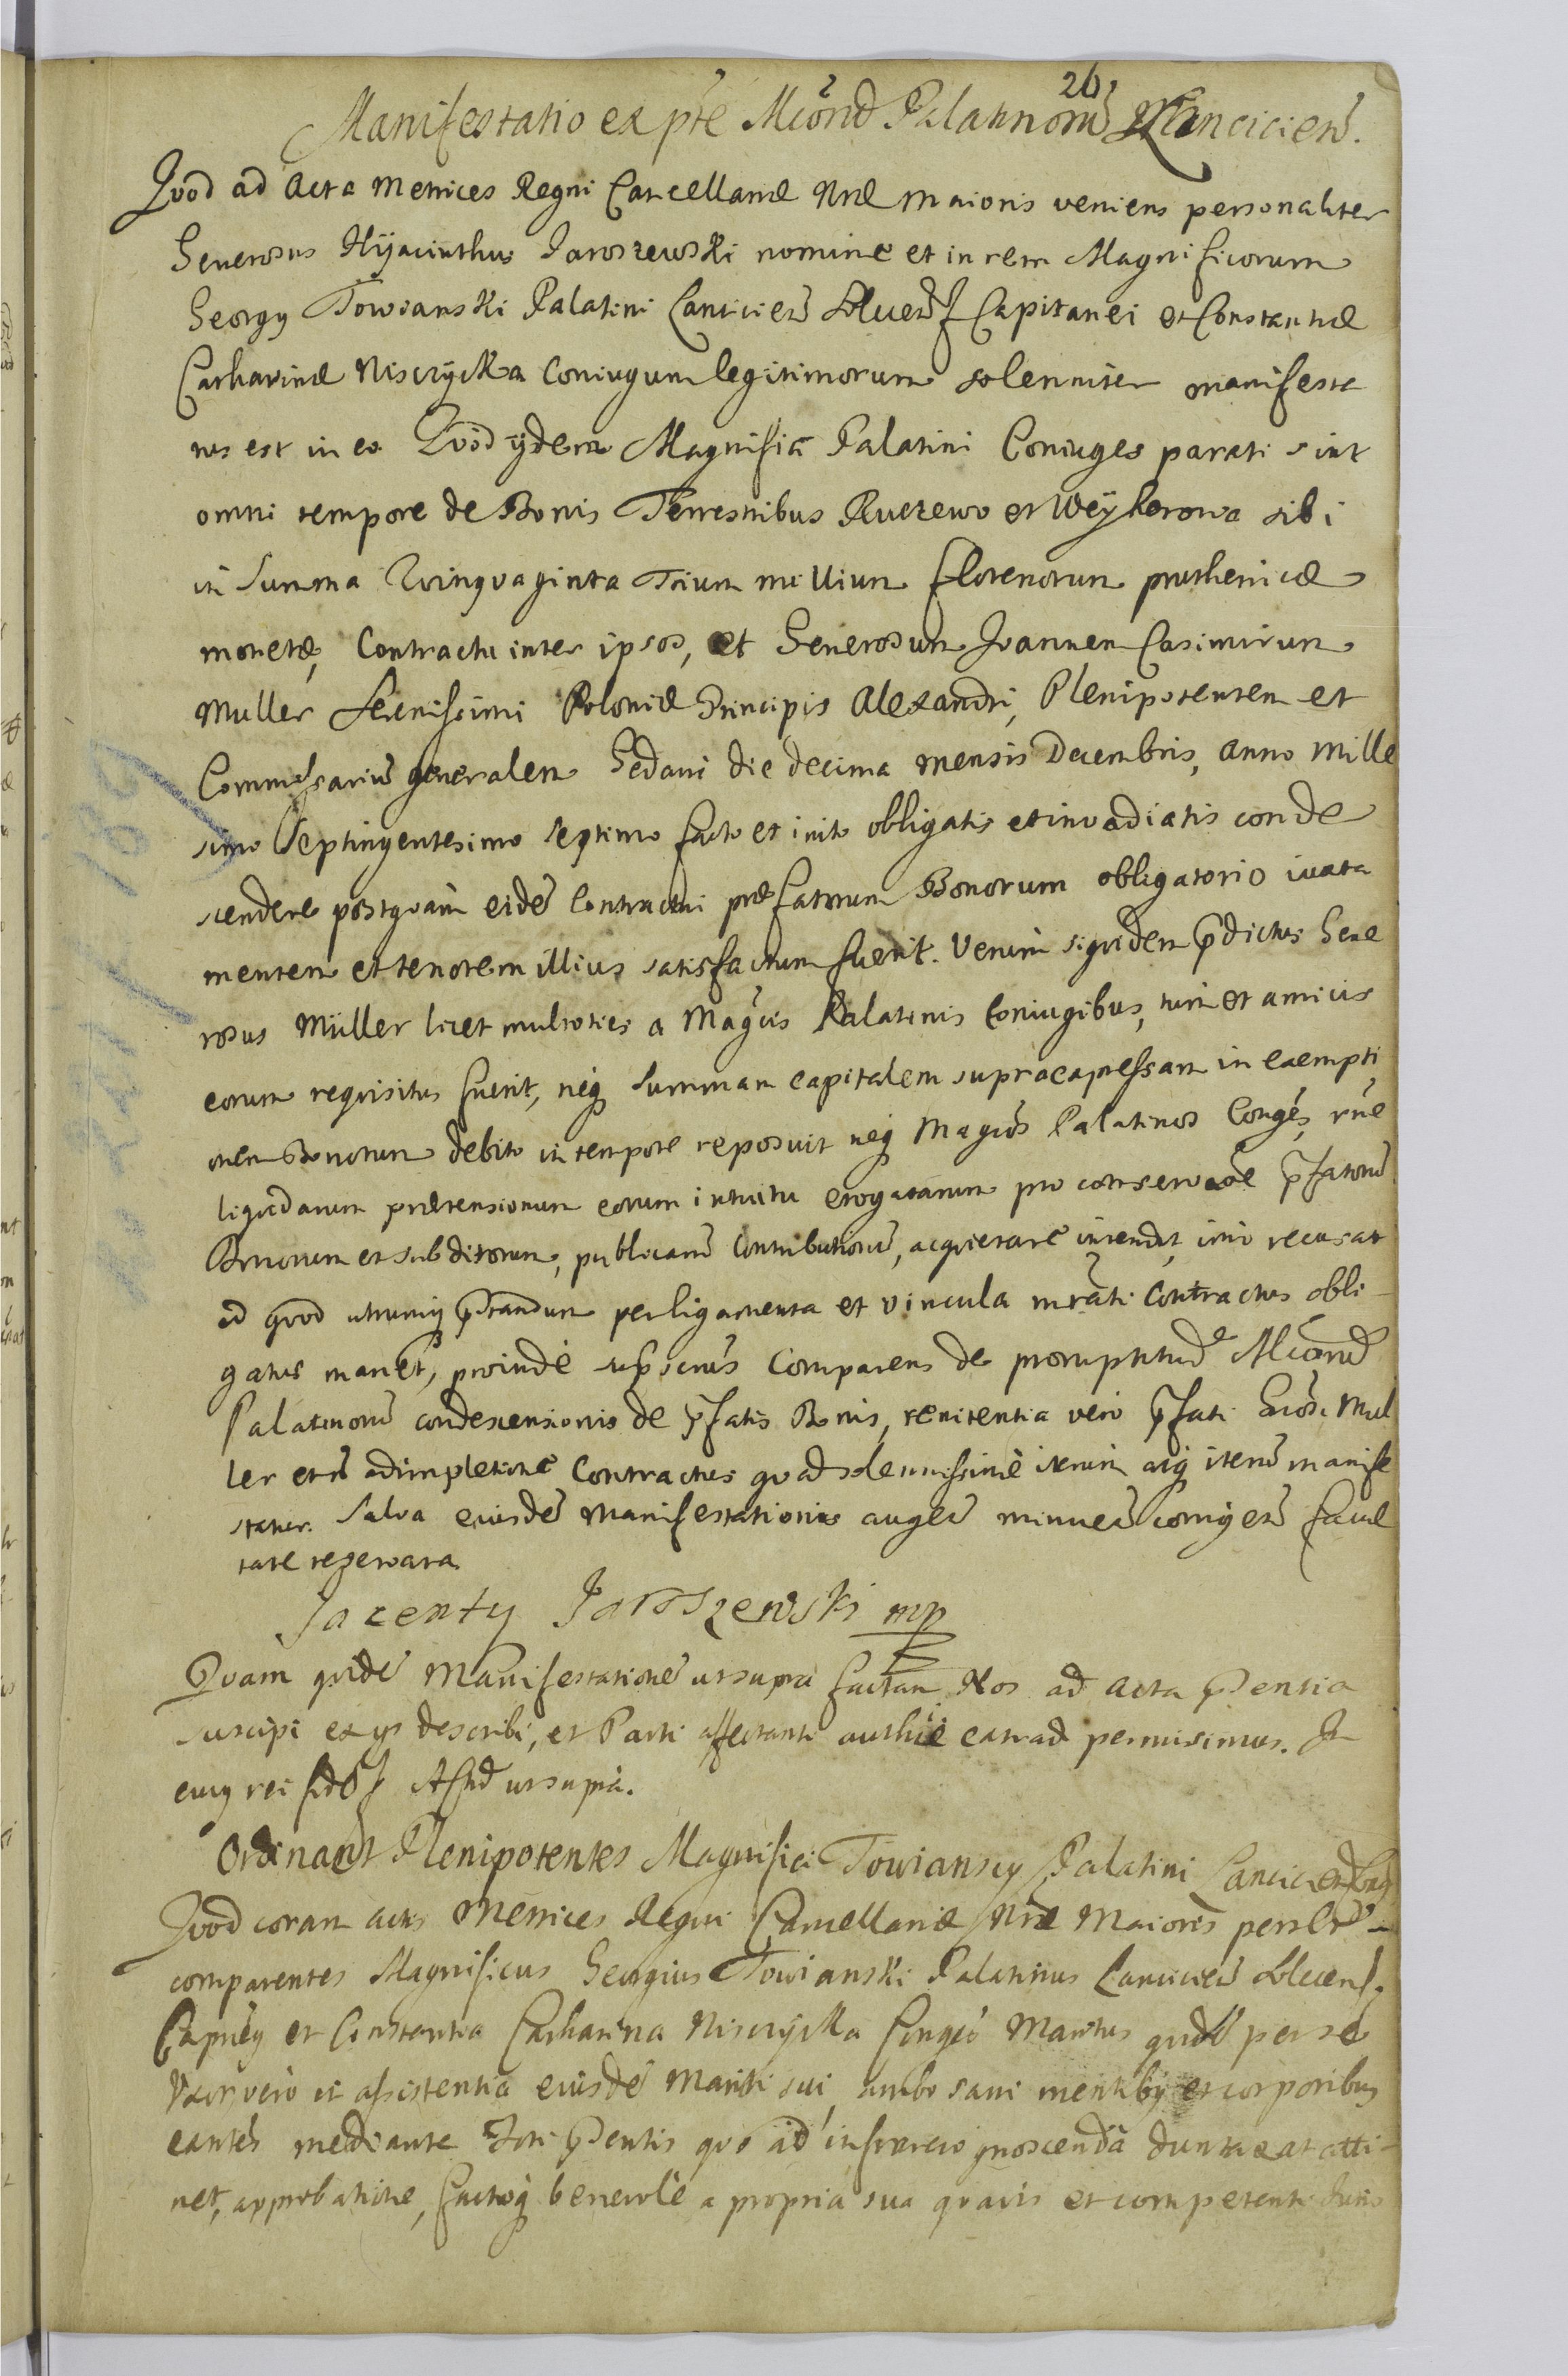 26
Manifestatio ex pte Mcōrd Palatinorū Lanciciens.
Qvod ad Acta Metrices Regni Cancellariæ Nræ Maioris veniens personaliter
Generosus Hyacinthus Jaroszewski nomine et in rem Magnificorum
Georgy Towianski Palatini Lanciciens Capitanei et Constantiæ
Catharinæ Niszczycka Coniugum legitimorum solenniter manifesta
tus est in eo Qvod ijdem Magnifici Palatini Coniuges parati sint
omni tempore de Bonis Terrestribus Rucewo et Weyherowa sibi
in Summa Qvinqvaginta Trium millium florenorum pruthenicæ
monetæ, Contractu inter ipsos, et Generosum Joannem Casimirum
Muller Serenissimi Poloniæ Principis Alexandri, Plenipotentem et
Commissariū generalem Gedani die decima mensis Decembris, anno Mille
simo Septingentesimo septimo facto et inito obligatis et invadiatis conde
scendere postqvam eidē Contractui præfatorum Bonorum obligatorio iuxta
mentem et tenorem illius satisfactum fuerit. Verum siqvidem p̄dictus Gene
rosus Müller licet multoties a Magcis Palatinis Coniugibus, tum et amicis
eorum reqvisitus fuerit, neq̨ Summam capitalem supraexpressam in exempti
onem Bonorum debito in tempore reposuit neq̨ Magcos Palatinos Conges, rñe
liqvidarum prætensionum eorum intuitu erogatarum pro conservaōe p̄fatorū
Bonorum et subditorum, publicarū Contributionū, acqvietare intendit, imo recusat
ad qvod utrumq̨ p̄standum per ligamenta et vincula mrāti Contractus obli-
gatus manet, proinde sup̄scrus Comparens de promptitude Mcōrd
Palatinorū condescensionis de p̄fatis Bonis, renitentia vero p̄fati Gnosi Mul
ler etc adimpletione Contractus qvad solennissimè iterum atq̨ iterū manife
statur. Salva eiusdē Manifestationis augen minuen corrigen facul
tate reservata
Jacenty Jaroszewski mp
Qvam qvidē Manifestationē ut supra factam Nos ad Acta p̄sentia
suscipi ex ijs describi, et Parti affectanti authce extrad permisimus. In
cuius rei fidē Act ut supra.
Ordinant Plenipotentes Magnifici Towianscy Palatini Lancicien
Qvod coram actis Metrices Regni Cancellariæ Nræ Maioris personlr
comparentes Magnificus Georgius Towianski Palatinus Lanciciens
Capney et Constantia Catharina Niszczycka Conges Maritus qvidē per se
Uxor vero in assistentia eiusdē Mariti sui, ambo sani mentibus et corporibus
eantes mediante Fori p̄sentis qvo ad infrarecognoscenda duntaxat atti-
net, approbatione, factoq̨ benevolè a propria sua qvavis et competenti Juris